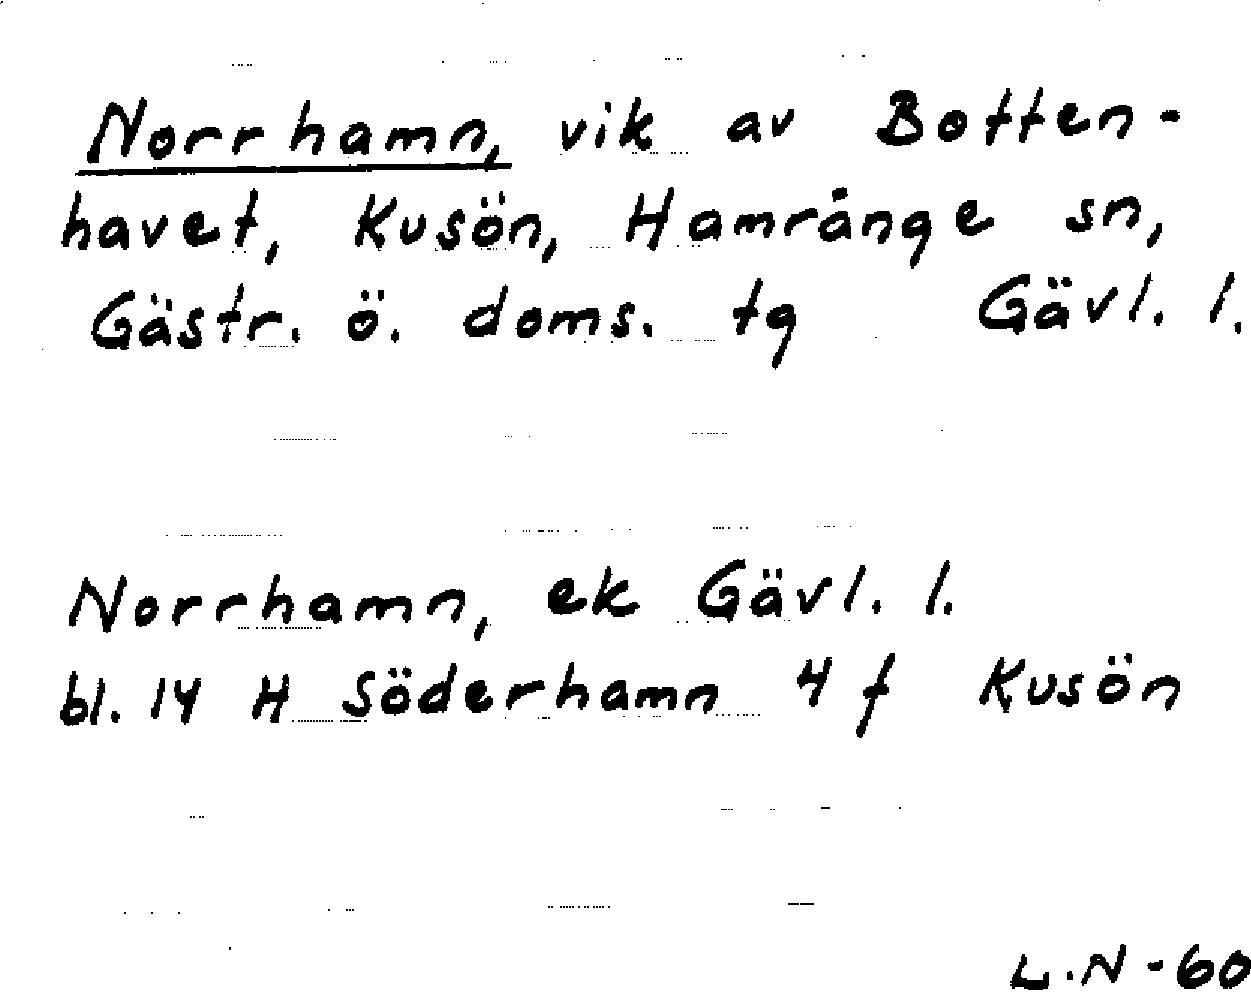 Norrhamn, vik av Botten-
havet, Kusön, Hamrånge sn,
Gästr. ö. doms. tg Gävl. l.
Norrhamn, ek Gävl. l.
bl. 14 H Söderhamn 4 f Kusön
L.N-60